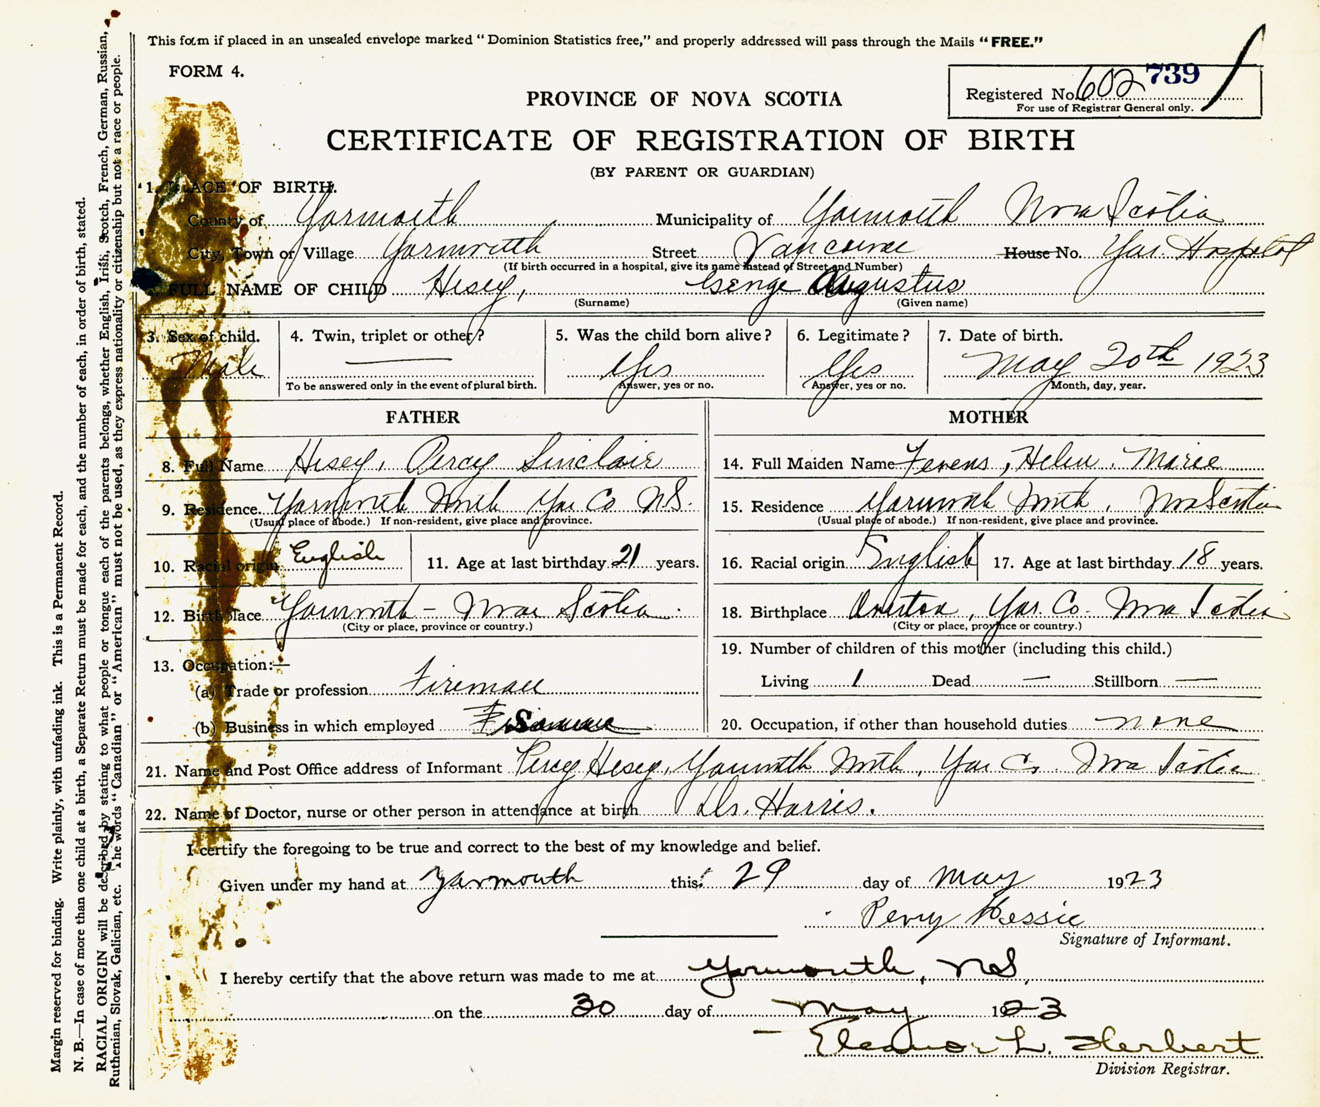 This form if placed in an unsealed envelope marked "Dominion Statistics free," and properly addressed will pass through the Mails "FREE."
FORM 4.
Registered No. 602 739
For use of Registrar General only.
PROVINCE OF NOVA SCOTIA
CERTIFICATE OF REGISTRATION OF BIRTH
(BY PARENT OR GUARDIAN)
1. PLACE OF BIRTH.
County of Yarmouth Municipality of Yarmouth Nova Scotia
City, Town or Village Yarmouth Street Vancouver House No. Yar Hospital
(If birth occurred in a hospital, give its name instead of Street and Number)
FULL NAME OF CHILD Hisey, George Augustus
(Surname) (Given name)
3. Sex of child. 4. Twin, triplet or other? 5. Was the child born alive? 6. Legitimate? 7. Date of birth.
Male — Yes Yes May 20th 1923
To be answered only in the event of plural birth. Answer, yes or no. Answer, yes or no. Month, day, year.
FATHER MOTHER
8. Full Name Hisey, Percy Sinclair
14. Full Maiden Name Fevens, Helen Marie
9. Residence. Yarmouth North Yar Co N.S.
(Usual place of abode.) If non-resident, give place and province.
15. Residence Yarmouth North, Nova Scotia
(Usual place of abode.) If non-resident, give place and province.
10. Racial origin English 11. Age at last birthday 21 years.
16. Racial origin English 17. Age at last birthday 18 years.
12. Birthplace Yarmouth - Nova Scotia
(City or place, province or country.)
18. Birthplace Overton, Yar. Co. Nova Scotia
(City or place, province or country.)
13. Occupation:—
(a) Trade or profession Fireman
(b) Business in which employed
19. Number of children of this mother (including this child.)
Living 1 Dead — Stillborn —
20. Occupation, if other than household duties none
21. Name and Post Office address of Informant Percy Hisey, Yarmouth North, Yar Co Nova Scotia
22. Name of Doctor, nurse or other person in attendance at birth Dr. Harris.
I certify the foregoing to be true and correct to the best of my knowledge and belief.
Given under my hand at Yarmouth this 29 day of May 1923
Percy Hessie
Signature of Informant.
I hereby certify that the above return was made to me at Yarmouth, N.S.
on the 30 day of May 1923
Eleanor L. Herbert
Division Registrar.
Margin reserved for binding. Write plainly, with unfading ink. This is a Permanent Record.
N. B.—In case of more than one child at a birth, a Separate Return must be made for each, and the number of each, in order of birth, stated.
RACIAL ORIGIN will be described by stating to what people or tongue each of the parents belongs, whether English, Irish, Scotch, French, German, Russian,
Ruthenian, Slovak, Galician, etc. The words "Canadian" or "American" must not be used, as they express nationality or citizenship but not a race or people.